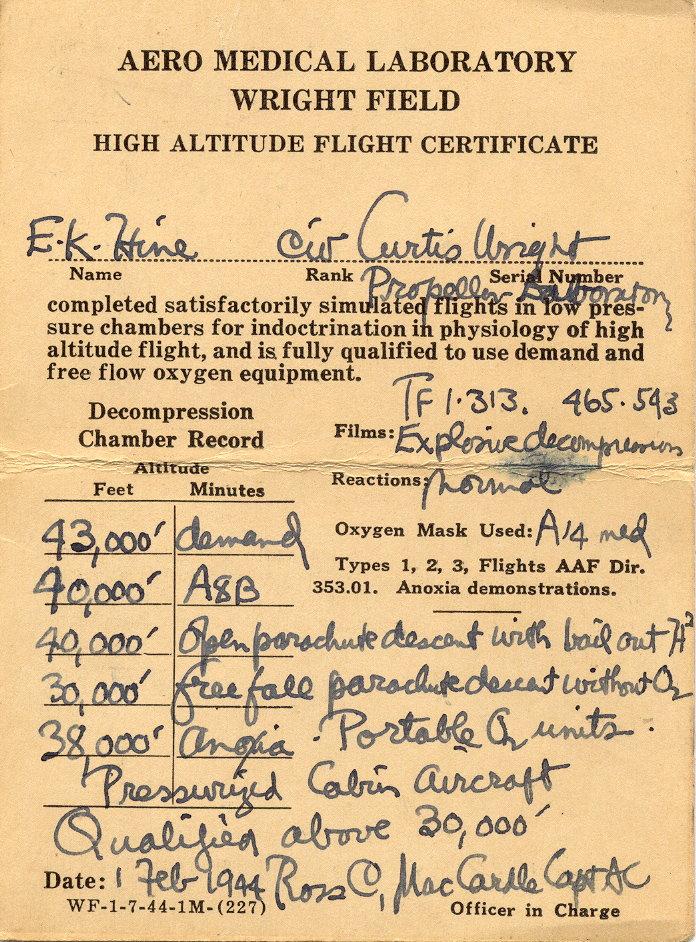 AERO MEDICAL LABORATORY
WRIGHT FIELD
HIGH ALTITUDE FLIGHT CERTIFICATE
E.K. Hine Civ Curtis Wright
Name Rank Serial Number
Propeller Laboratory
completed satisfactorily simulated flights in low pres-
sure chambers for indoctrination in physiology of high
altitude flight, and is fully qualified to use demand and
free flow oxygen equipment.
TF 1·313. 465·593
Decompression
Chamber Record
Films: Explosive decompression
Altitude
Feet Minutes
Reactions: normal
43,000' demand
Oxygen Mask Used: A14 med
Types 1, 2, 3, Flights AAF Dir.
353.01. Anoxia demonstrations.
40,000' A8B
40,000' Open parachute descent with bail out
30,000' free fall parachute descent without O2
38,000' anoxia · Portable O2 units .
Pressurized Cabin Aircraft
Qualified above 30,000'
Date: 1 Feb 1944 Ross C, MacCardle Capt AC
WF-1-7-44-1M-(227) Officer in Charge